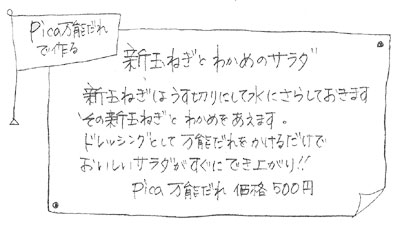 Pica万能だれ
で作る
新玉ねぎとわかめのサラダ
新玉ねぎはうす切りにして水にさらしておきます
その新玉ねぎとわかめをあえます。
ドレッシングとして万能だれをかけるだけで
おいしいサラダがすぐにでき上がり!!
Pica万能だれ 価格500円